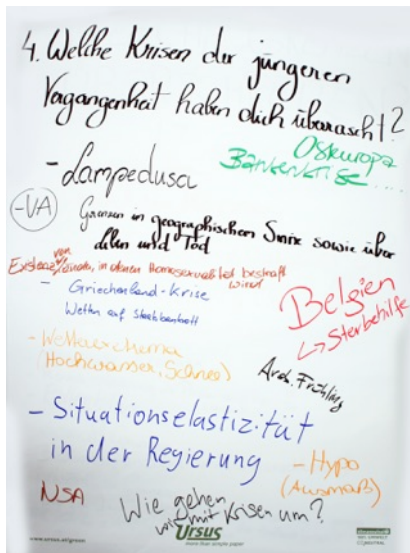 4. Welche Krisen der jüngeren
Vergangenheit haben dich überascht?
Osteuropa
Bankenkrise ....
- Lampedusa
- VA
Grenzen in geographischem Sinne sowie über
Leben und Tod
Existenz von Staaten, in denen Homosexualität bestraft
wird
- Griechenland-Krise
Wetten auf Staatsbankrott
Belgien
↳ Sterbehilfe
- Wetterextrema
(Hochwasser, Schnee)
Arab. Frühling
- Situationselastizität
in der Regierung
- Hypo
(Ausmaß)
NSA
Wie gehen
wir mit Krisen um?
www.ursus.at/green
Ursus
more than simple paper